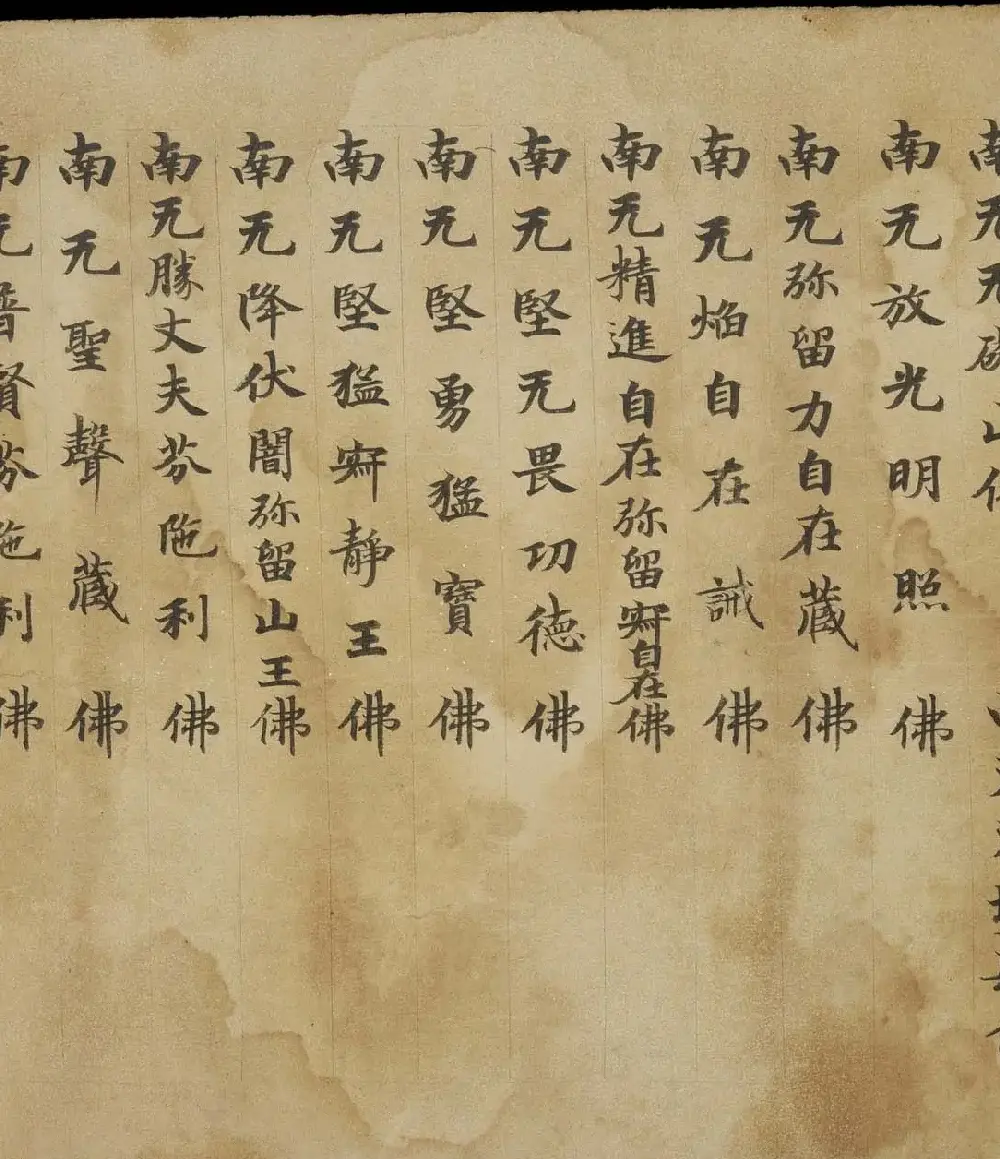 南无无礙山佛
南无放光明照佛
南无弥留力自在藏佛
南无焰自在誡佛
南无精進自在弥留㝛自在佛
南无堅无畏功德佛
南无堅勇猛寶佛
南无堅猛㝛靜王佛
南无降伏闇弥留山王佛
南无勝丈夫芬陁利佛
南无聖聲藏佛
南无普賢芬陁利佛